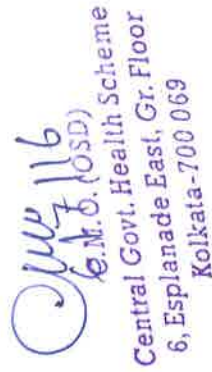 C.M.O. (OSD)
Central Govt. Health Scheme
6, Esplanade East, Gr. Floor
Kolkata-700 069